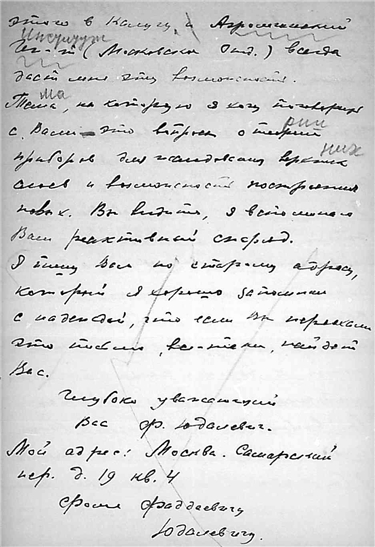 этого в Калугу, и Аэрологический
Институт
Ин-т (Московское Отд.) всегда
даст мне эту возможность.
ма
Тема, на которую я хочу поговорить
рии
с Вами – это вопрос о теории
них
приборов для исследования верхних
слоев и возможность построения
новых. Вы видите, я вспоминаю
Ваш реактивный снаряд.
Я пишу Вам по старому адресу,
который я хорошо запомнил
с надеждой, что если Вы переехали
это письмо, все-таки, найдет
Вас.
Глубоко уважающий
Вас Ф. Юдалевич.
Мой адрес: Москва. Самарский
пер. д. 19 кв. 4
Фоме Фаддеевичу
Юдалевичу.